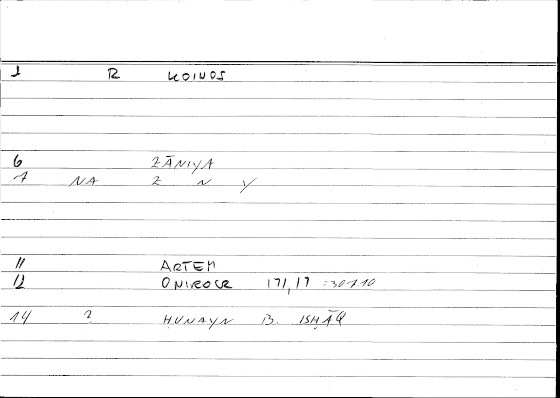 1 R KOINOS
6 ZĀNIYA
7 NA Z N Y
11 ARTEM
12 ONIROCR 171,17 =307.10
14 2 ḤUNAYN B. ISḤĀQ